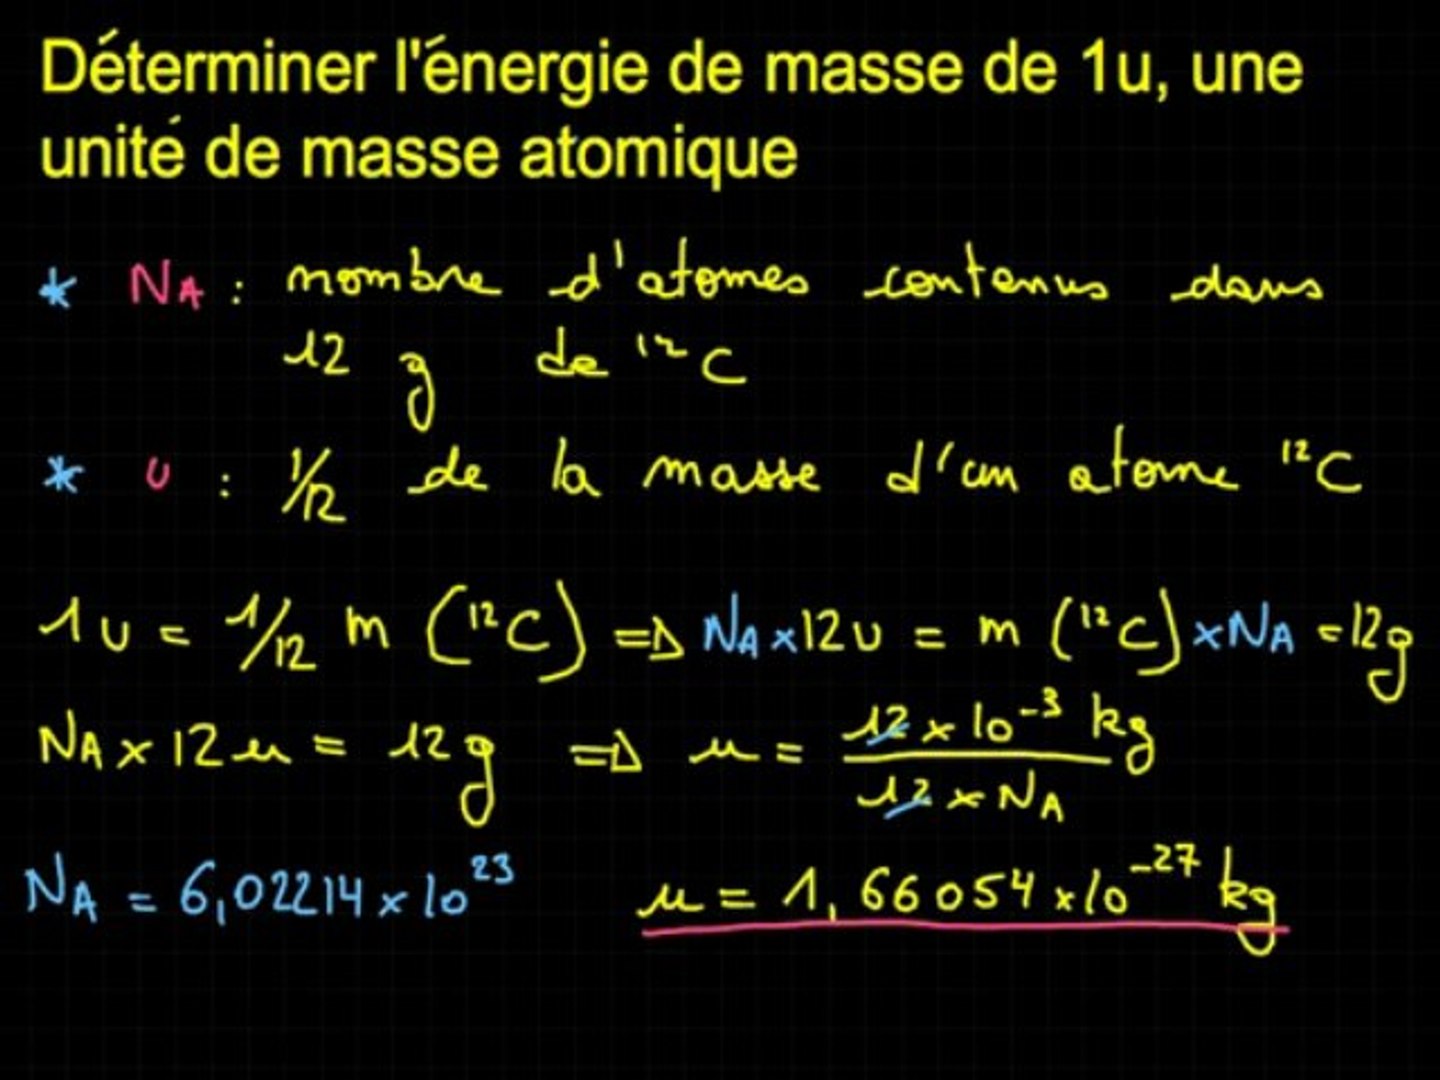 Déterminer l'énergie de masse de 1u, une
unité de masse atomique
* NA : nombre d'atomes contenus dans
12 g de ¹²C
* u : 1/12 de la masse d'un atome ¹²C
1u = 1/12 m (¹²C) ⇒ NA×12u = m (¹²C)×NA = 12g
NA × 12u = 12g ⇒ u = 12 × 10⁻³ kg / 12 × NA
NA = 6,02214 × 10²³ u = 1,66054 × 10⁻²⁷ kg